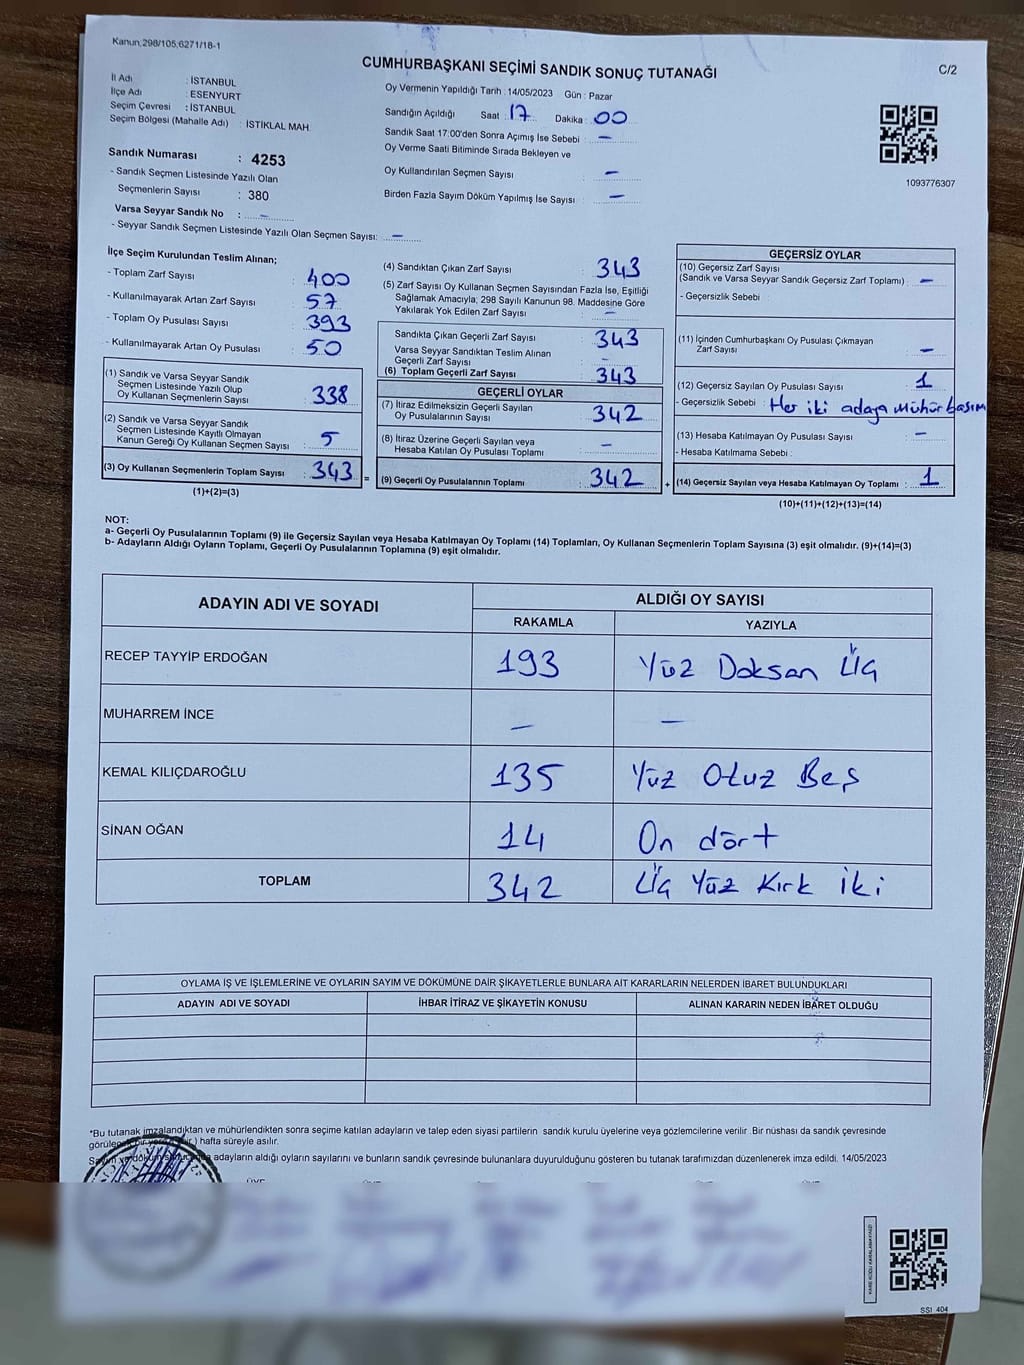 Kanun;298/105;6271/18-1
CUMHURBAŞKANI SEÇİMİ SANDIK SONUÇ TUTANAĞI
C/2
İl Adı : İSTANBUL
İlçe Adı : ESENYURT
Seçim Çevresi : İSTANBUL
Seçim Bölgesi (Mahalle Adı) : İSTİKLAL MAH.
Sandık Numarası : 4253
- Sandık Seçmen Listesinde Yazılı Olan
Seçmenlerin Sayısı : 380
Varsa Seyyar Sandık No : –
- Seyyar Sandık Seçmen Listesinde Yazılı Olan Seçmen Sayısı: –
Oy Vermenin Yapıldığı Tarih : 14/05/2023 Gün : Pazar
Sandığın Açıldığı Saat : 17 Dakika : 00
Sandık Saat 17:00'den Sonra Açımış İse Sebebi : –
Oy Verme Saati Bitiminde Sırada Bekleyen ve
Oy Kullandırılan Seçmen Sayısı : –
Birden Fazla Sayım Döküm Yapılmış İse Sayısı : –
1093776307
İlçe Seçim Kurulundan Teslim Alınan;
- Toplam Zarf Sayısı : 400
- Kullanılmayarak Artan Zarf Sayısı : 57
- Toplam Oy Pusulası Sayısı : 393
- Kullanılmayarak Artan Oy Pusulası : 50
(1) Sandık ve Varsa Seyyar Sandık
Seçmen Listesinde Yazılı Olup
Oy Kullanan Seçmenlerin Sayısı : 338
(2) Sandık ve Varsa Seyyar Sandık
Seçmen Listesinde Kayıtlı Olmayan
Kanun Gereği Oy Kullanan Seçmen Sayısı : 5
(3) Oy Kullanan Seçmenlerin Toplam Sayısı : 343 =
(1)+(2)=(3)
(4) Sandıktan Çıkan Zarf Sayısı : 343
(5) Zarf Sayısı Oy Kullanan Seçmen Sayısından Fazla İse, Eşitliği
Sağlamak Amacıyla, 298 Sayılı Kanunun 98. Maddesine Göre
Yakılarak Yok Edilen Zarf Sayısı : –
Sandıkta Çıkan Geçerli Zarf Sayısı : 343
Varsa Seyyar Sandıktan Teslim Alınan
Geçerli Zarf Sayısı : –
(6) Toplam Geçerli Zarf Sayısı : 343
GEÇERLİ OYLAR
(7) İtiraz Edilmeksizin Geçerli Sayılan
Oy Pusulalarının Sayısı : 342
(8) İtiraz Üzerine Geçerli Sayılan veya
Hesaba Katılan Oy Pusulası Toplamı : –
(9) Geçerli Oy Pusulalarının Toplamı : 342 +
GEÇERSİZ OYLAR
(10) Geçersiz Zarf Sayısı
(Sandık ve Varsa Seyyar Sandık Geçersiz Zarf Toplamı) : –
- Geçersizlik Sebebi
(11) İçinden Cumhurbaşkanı Oy Pusulası Çıkmayan
Zarf Sayısı : –
(12) Geçersiz Sayılan Oy Pusulası Sayısı : 1
- Geçersizlik Sebebi : Her iki adaya mühür basım
(13) Hesaba Katılmayan Oy Pusulası Sayısı : –
- Hesaba Katılmama Sebebi :
(14) Geçersiz Sayılan veya Hesaba Katılmayan Oy Toplamı : 1
(10)+(11)+(12)+(13)=(14)
NOT:
a- Geçerli Oy Pusulalarının Toplamı (9) ile Geçersiz Sayılan veya Hesaba Katılmayan Oy Toplamı (14) Toplamları, Oy Kullanan Seçmenlerin Toplam Sayısına (3) eşit olmalıdır. (9)+(14)=(3)
b- Adayların Aldığı Oyların Toplamı, Geçerli Oy Pusulalarının Toplamına (9) eşit olmalıdır.
ADAYIN ADI VE SOYADI
ALDIĞI OY SAYISI
RAKAMLA YAZIYLA
RECEP TAYYİP ERDOĞAN 193 Yüz Doksan Üç
MUHARREM İNCE – –
KEMAL KILIÇDAROĞLU 135 Yüz Otuz Beş
SİNAN OĞAN 14 On dört
TOPLAM 342 Üç Yüz Kırk İki
OYLAMA İŞ VE İŞLEMLERİNE VE OYLARIN SAYIM VE DÖKÜMÜNE DAİR ŞİKAYETLERLE BUNLARA AİT KARARLARIN NELERDEN İBARET BULUNDUKLARI
ADAYIN ADI VE SOYADI İHBAR İTİRAZ VE ŞİKAYETİN KONUSU ALINAN KARARIN NEDEN İBARET OLDUĞU
*Bu tutanak imzalandıktan ve mühürlendikten sonra seçime katılan adayların ve talep eden siyasi partilerin sandık kurulu üyelerine veya gözlemcilerine verilir. Bir nüshası da sandık çevresinde
hafta süreyle asılır.
adayların aldığı oyların sayılarını ve bunların sandık çevresinde bulunanlara duyurulduğunu gösteren bu tutanak tarafımızdan düzenlenerek imza edildi. 14/05/2023
SSİ 404